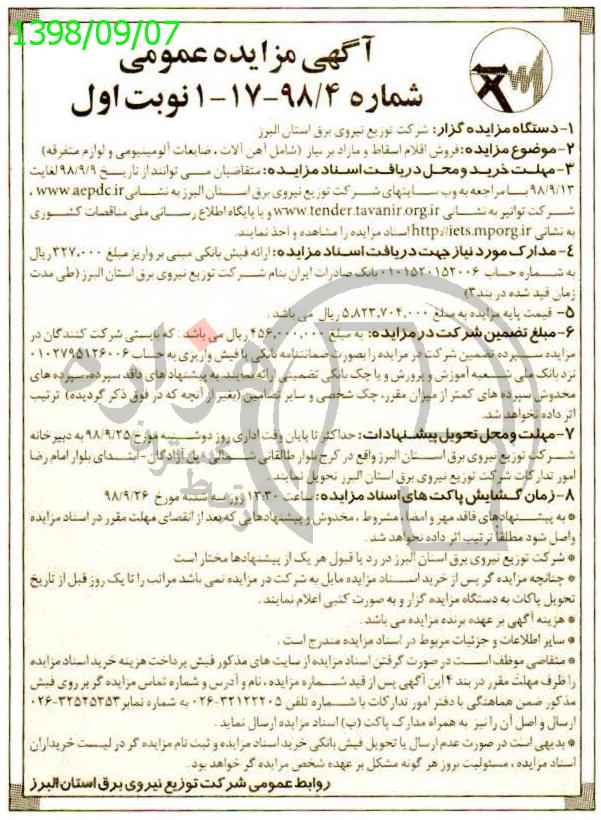 1398/09/07
آگهی مزایده عمومی
شماره ۹۸/۴-۱۷-۱ نوبت اول
۱- دستگاه مزایده گزار: شرکت توزیع نیروی برق استان البرز
۲- موضوع مزایده: فروش اقلام اسقاط و مازاد بر نیاز (شامل آهن آلات، ضایعات آلومینیومی و لوازم متفرقه)
۳- مهلت خرید و محل دریافت اسناد مزایده: متقاضیان می توانند از تاریخ ۹۸/۹/۹ لغایت
۹۸/۹/۱۳ با مراجعه به وب سایتهای شرکت توزیع نیروی برق استان البرز به نشانی www.aepdc.ir ،
شرکت توانیر به نشانی www.tender.tavanir.org.ir و یا پایگاه اطلاع رسانی ملی مناقصات کشوری
به نشانی http://iets.mporg.ir اسناد مزایده را مشاهده و اخذ نمایند.
۴- مدارک مورد نیاز جهت دریافت اسناد مزایده: ارائه فیش بانکی مبنی بر واریز مبلغ ۳۲۷،۰۰۰ ریال
به شماره حساب ۰۱۰۱۵۲۰۱۵۲۰۰۶ بانک صادرات ایران بنام شرکت توزیع نیروی برق استان البرز (طی مدت
زمان قید شده در بند۳)
۵- قیمت پایه مزایده به مبلغ ۵،۸۲۳،۷۰۴،۰۰۰ ریال می باشد .
۶- مبلغ تضمین شرکت در مزایده: به مبلغ ۴۵۶،۰۰۰،۰۰۰ ریال می باشد . که بایستی شرکت کنندگان در
مزایده سپرده تضمین شرکت در مزایده را بصورت ضمانتنامه بانکی یا فیش واریزی به حساب ۰۱۰۲۷۹۵۱۲۶۰۰۶
نزد بانک ملی شعبه آموزش و پرورش و یا چک بانکی تضمینی ارائه نمایند. به پیشنهاد های فاقد سپرده، سپرده های
مخدوش سپرده های کمتر از میزان مقرر، چک شخصی و سایر تضامین (بغیر از آنچه که در فوق ذکر گردیده) ترتیب
اثر داده نخواهد شد.
۷- مهلت و محل تحویل پیشنهادات: حداکثر تا پایان وقت اداری روز دوشنبه مورخ ۹۸/۹/۲۵ به دبیرخانه
شرکت توزیع نیروی برق استان البرز واقع در کرج بلوار طالقانی شمالی - پل آزادگان - ابتدای بلوار امام رضا
امور تدارکات شرکت توزیع نیروی برق استان البرز تحویل نمایند.
۸- زمان گشایش پاکت های اسناد مزایده: ساعت ۱۳:۳۰ روز سه شنبه مورخ ۹۸/۹/۲۶
* به پیشنهادهای فاقد مهر و امضا، مشروط ، مخدوش و پیشنهادهایی که بعد از انقضای مهلت مقرر در اسناد مزایده
واصل شود مطلقا ترتیب اثر داده نخواهد شد.
* شرکت توزیع نیروی برق استان البرز در رد یا قبول هر یک از پیشنهادها مختار است
* چنانچه مزایده گر پس از خرید اسناد مزایده مایل به شرکت در مزایده نمی باشد مراتب را تا یک روز قبل از تاریخ
تحویل پاکات به دستگاه مزایده گزار و به صورت کتبی اعلام نمایند .
* هزینه آگهی بر عهده برنده مزایده می باشد .
* سایر اطلاعات و جزئیات مربوط در اسناد مزایده مندرج است .
* متقاضی موظف است در صورت گرفتن اسناد مزایده از سایت های مذکور فیش پرداخت هزینه خرید اسناد مزایده
را ظرف مهلت مقرر در بند ۴ این آگهی پس از قید شماره مزایده ، نام و آدرس و شماره تماس مزایده گر بر روی فیش
مذکور ضمن هماهنگی با دفتر امور تدارکات با شماره تلفن ۳۲۱۲۲۲۰۵-۰۲۶ به شماره نمابر ۳۲۵۲۵۳۵۳-۰۲۶
ارسال و اصل آن را نیز به همراه مدارک پاکت (ب) اسناد مزایده ارسال نماید .
* بدیهی است در صورت عدم ارسال یا تحویل فیش بانکی خرید اسناد مزایده و ثبت نام مزایده گر در لیست خریداران
اسناد مزایده ، مسئولیت بروز هر گونه مشکل بر عهده شخص مزایده گر خواهد بود .
روابط عمومی شرکت توزیع نیروی برق استان البرز